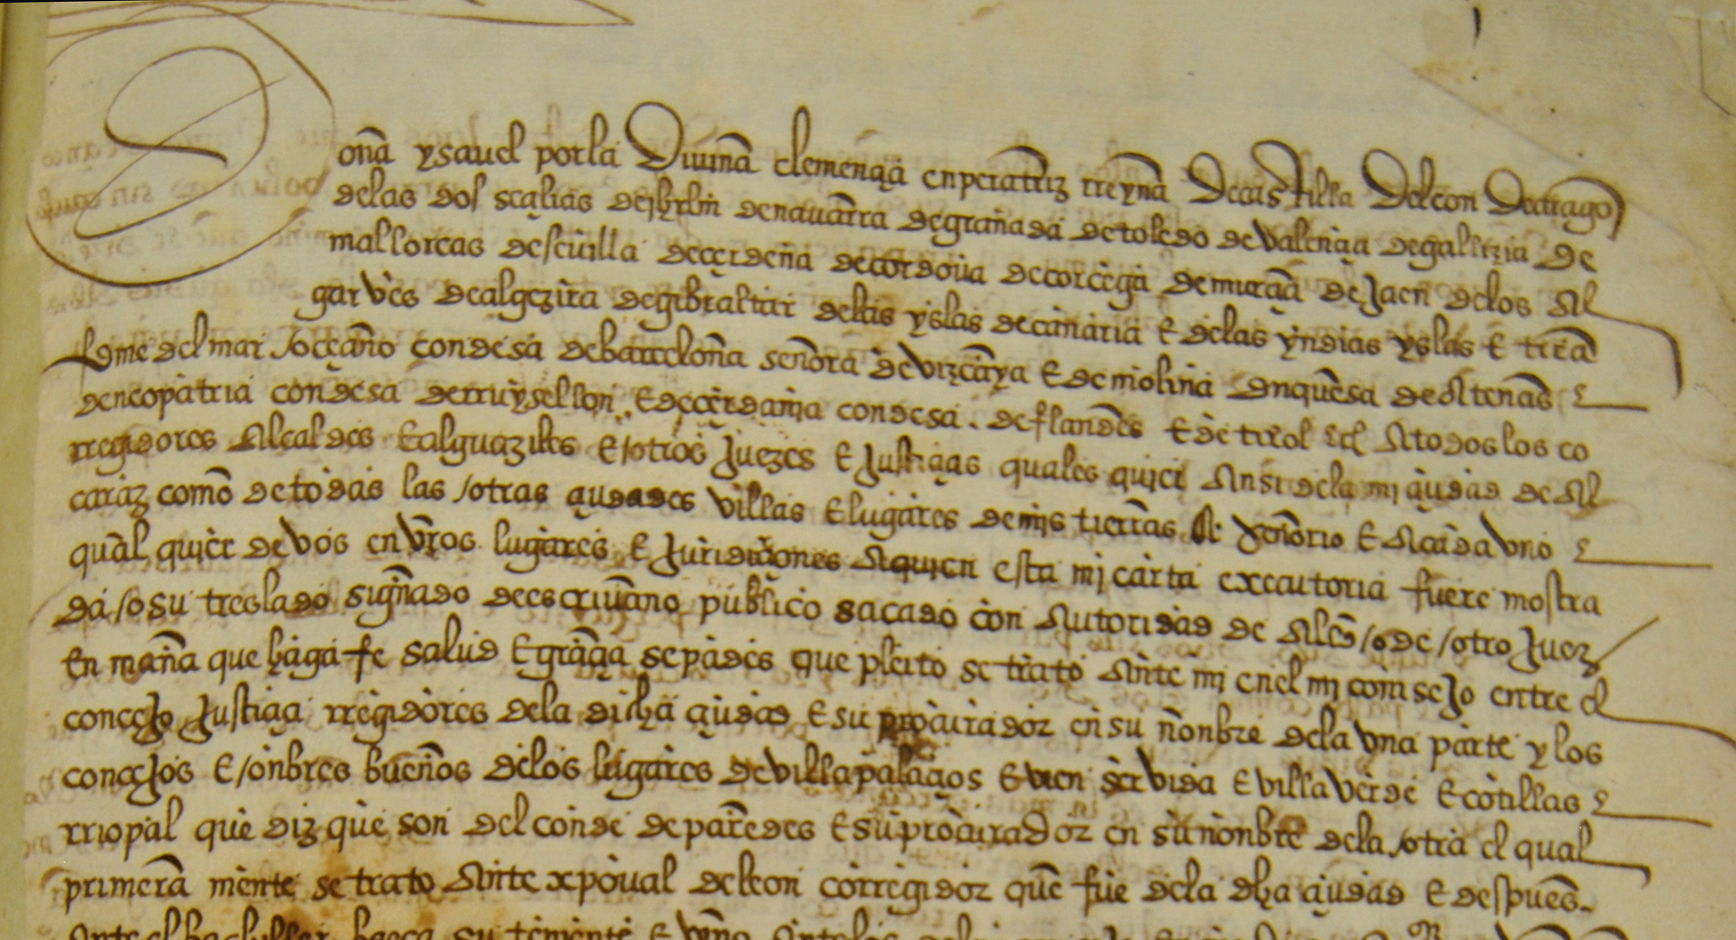 Dona ysauel por la Divina clemençia enperatriz rreyna De castilla De leon De arago
de las dos sçeçilias de jhrlm de navarra de granada de toledo de valençia de galizia de
mallorcas de sevilla de çerdeña de cordova de corçega de murçia de Jaen de los Al
garves de algezira de gibraltar de las yslas de canaria E de las yndias yslas E trra
fyrme del mar /oçeano condesa de barcelona señora de vizcaya E de molina duquesa de Atenas
de neopatria condesa de rruysellon E de çerdania condesa de flandes E de tirol etc A todos los co
rregidores Alcaldes E alguaziles E /otros Juezes E Justiçias quales quier Ansi de la mi çiudad de Al
caraz como de todas las /otras çiudades villas E lugares de mis tierras E señorio E A cada vno
qual quier de vos en vros lugares E Juridiçiones A quien esta mi carta executoria fuere mostra
da /o su treslado signado de escriuano publico sacado con Autoridad de Alcde /o de /otro Juez
En mana que haga fe salud E graçia sepades que pleito se trato Ante mi en el mi consejo entre el
conçejo Justiçia rregidores de la dicha çiudad E su procurador en su nonbre de la vna parte y los
conçejos E /onbres buenos de los lugares de villapalaçios E vien servida E villa verde E cotillas
rriopal que diz que son del conde de paredes E su procurador en su nonbre de la /otra el qual
primera mente se trato Ante xpoual de leon corregidor que fue de la dha çiudad E despues
Ante el bachiller baeça su teniente E